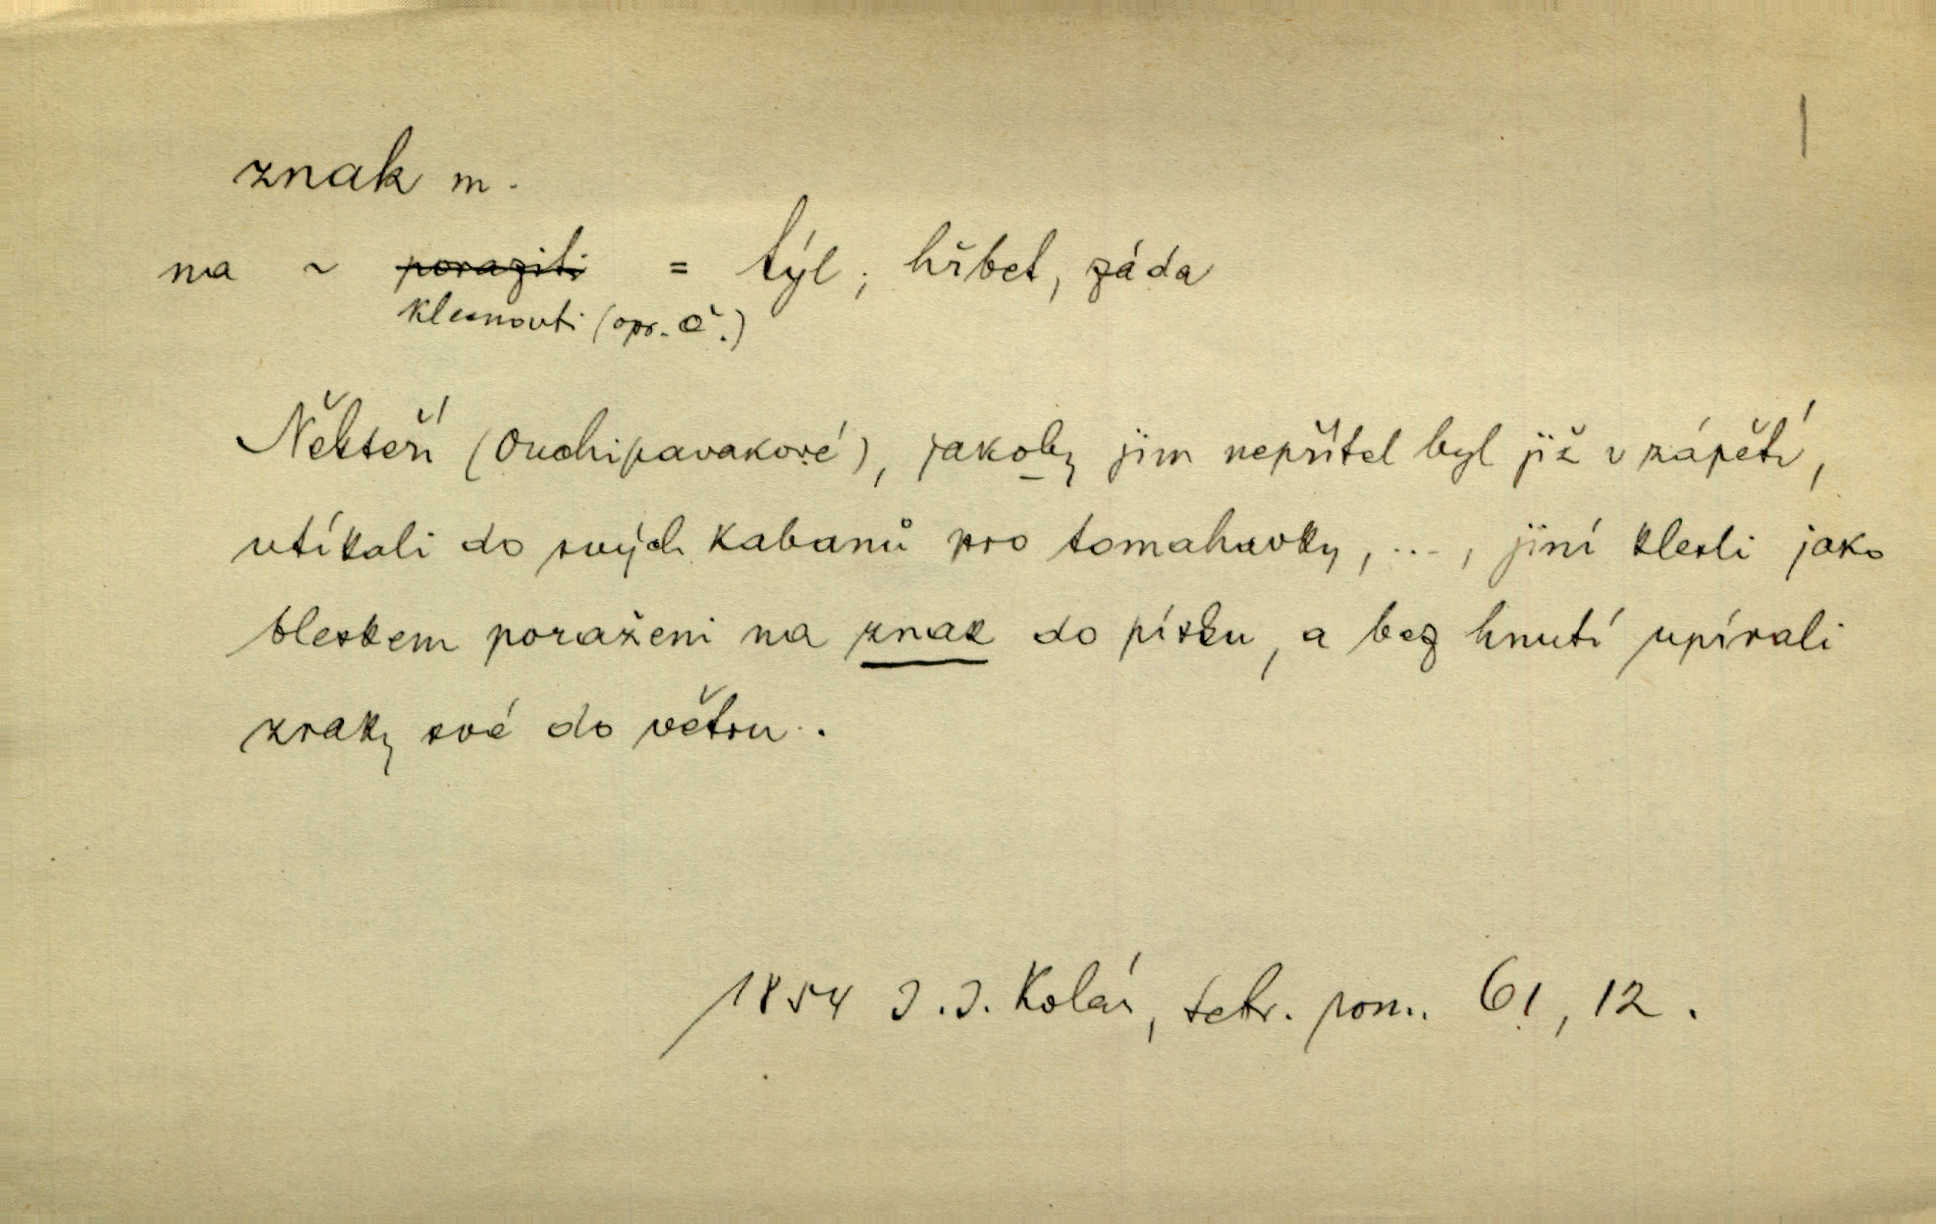 znak m.
na ~ poraziti = týl; hřbet, záda
klesnouti (opr. Č.)
Někteří (Ouchipavakové), jakoby jim nepřítel byl již v zápětí,
utíkali do svých kabanů pro tomahavky, ..., jiní klesli jako
bleskem poraženi na znak do písku, a bez hnutí upírali
zraky své do větru..
1854 J. J. Kolár, 61, 12.